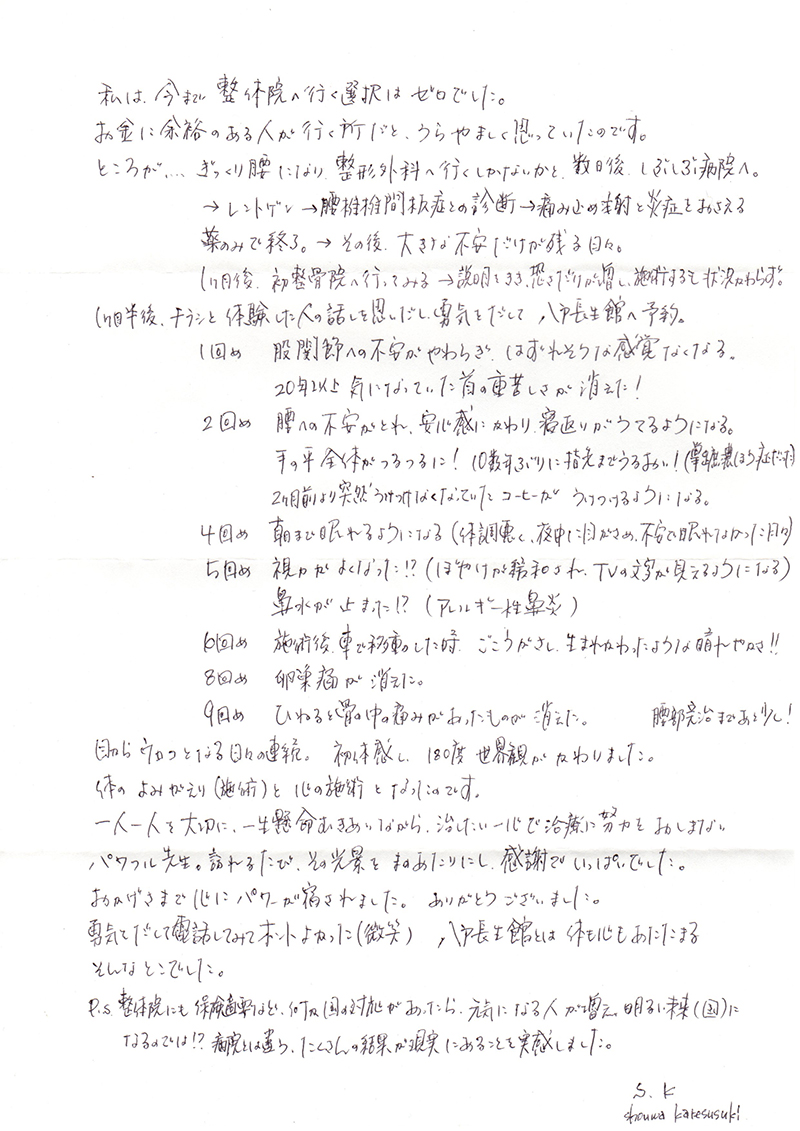 私は、今まで 整体院へ行く選択は ゼロでした。
お金に余裕のある人が行く所だと、うらやましく思っていたのです。
ところが…. ぎっくり腰になり、整形外科へ行くしかないかと、数日後、しぶしぶ病院へ。
→レントゲン→腰椎椎間板症との診断→痛み止め注射と炎症をおさえる
薬のみで終了。→その後、大きな不安だけが残る日々。
1ヶ月後、初整骨院へ行ってみる→説明をきき、恐さだけが増し、施術するも状況かわらず。
1ヶ月半後、チラシと体験した人の話しを思いだし、勇気をだして 八戸長生館へ予約。
1回め 股関節への不安がやわらぎ、はずれそうな感覚なくなる。
20年以上 気になっていた首の重苦しさが 消えた!
2回め 腰への不安がとれ、安心感にかわり、寝返りがうてるようになる。
手の平全体がつるつるに! 10数年ぶりに指先までうるおい!(掌蹠膿ほう症だった)
2ヶ月前より突然うけつけなくなっていた コーヒーが うけつけるようになる。
4回め 朝まで眠れるようになる(体調悪く、夜中に目がさめ、不安で眠れなかった日々)
5回め 視力がよくなった!?(ぼやけが緩和され、TVの文字が見えるようになる)
鼻水が止まった!?(アレルギー性鼻炎)
6回め 施術後、車で移動した時、ごこうがさし、生まれかわったような晴れやかさ!!
8回め 卵巣痛が消えた。
9回め ひねると骨の中の痛みがあったものが 消えた。 腰部完治まであと少し!
目からウロコとなる日々の連続。初体感し、180度 世界観がかわりました。
体の よみがえり(施術)と 心の施術 となったのです。
一人一人を大切に、一生懸命むきあいながら、治したい一心で治療に努力をおしまない
パワフル先生。訪れるたび、その光景を まのあたりにし、感謝で いっぱいでした。
おかげさまで 心に パワーが宿されました。ありがとうございました。
勇気をだして電話してみて ホントよかった(微笑) 八戸長生館とは 体も心もあたたまる
そんなとこでした。
P.S. 整体院にも 保険適要など、何か国の対応があったら、元気になる人が増え、明るい未来(国)に
なるのでは!? 病院とは違う、たくさんの結果が現実にあることを実感しました。
S. K
shouwa karesusuki